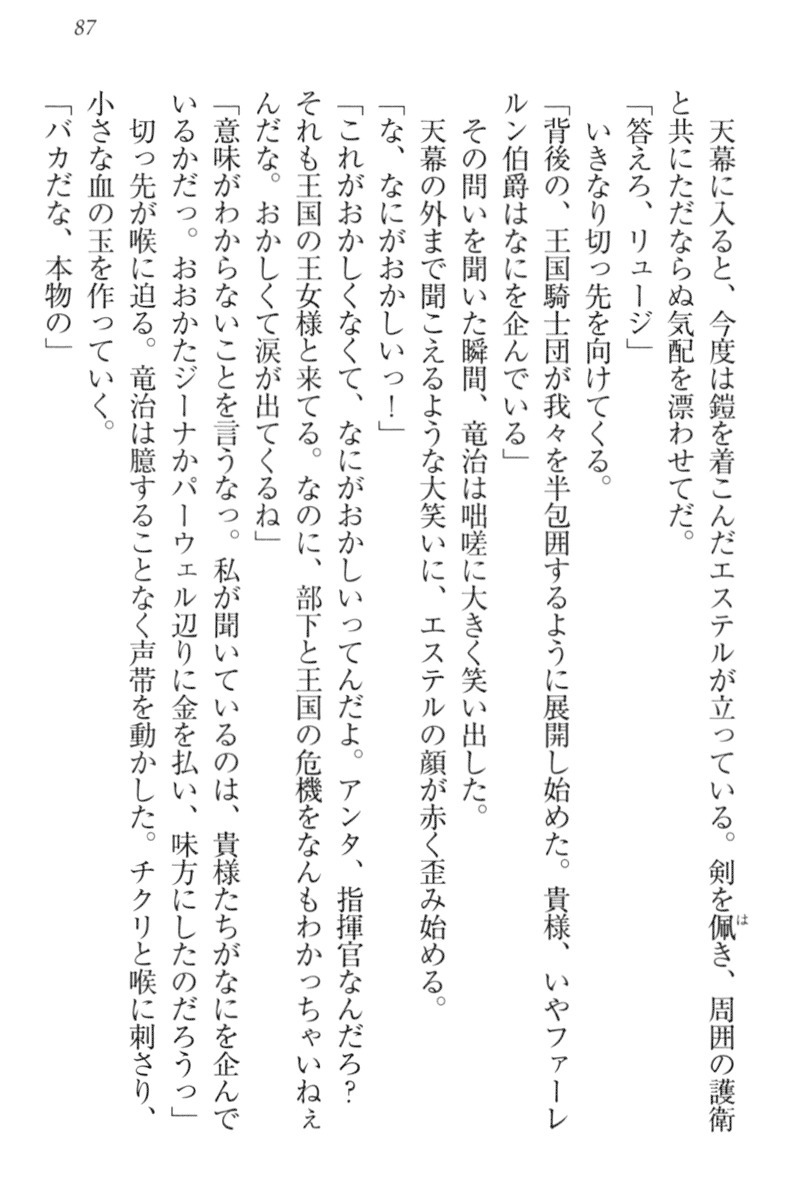 87
天幕に入ると、今度は鎧を着こんだエステルが立っている。剣を佩き、周囲の護衛
と共にただならぬ気配を漂わせてだ。
「答えろ、リュージ」
いきなり切っ先を向けてくる。
「背後の、王国騎士団が我々を半包囲するように展開し始めた。貴様、いやファーレ
ルン伯爵はなにを企んでいる」
その問いを聞いた瞬間、竜治は咄嗟に大きく笑い出した。
天幕の外まで聞こえるような大笑いに、エステルの顔が赤く歪み始める。
「な、なにがおかしいっ！」
「これがおかしくなくて、なにがおかしいってんだよ。アンタ、指揮官なんだろ？
それも王国の王女様と来てる。なのに、部下と王国の危機をなんもわかっちゃいねぇ
んだな。おかしくて涙が出てくるね」
「意味がわからないことを言うなっ。私が聞いているのは、貴様たちがなにを企んで
いるかだっ。おおかたジーナかパーウェル辺りに金を払い、味方にしたのだろうっ」
切っ先が喉に迫る。竜治は臆することなく声帯を動かした。チクリと喉に刺さり、
小さな血の玉を作っていく。
「バカだな、本物の」
は